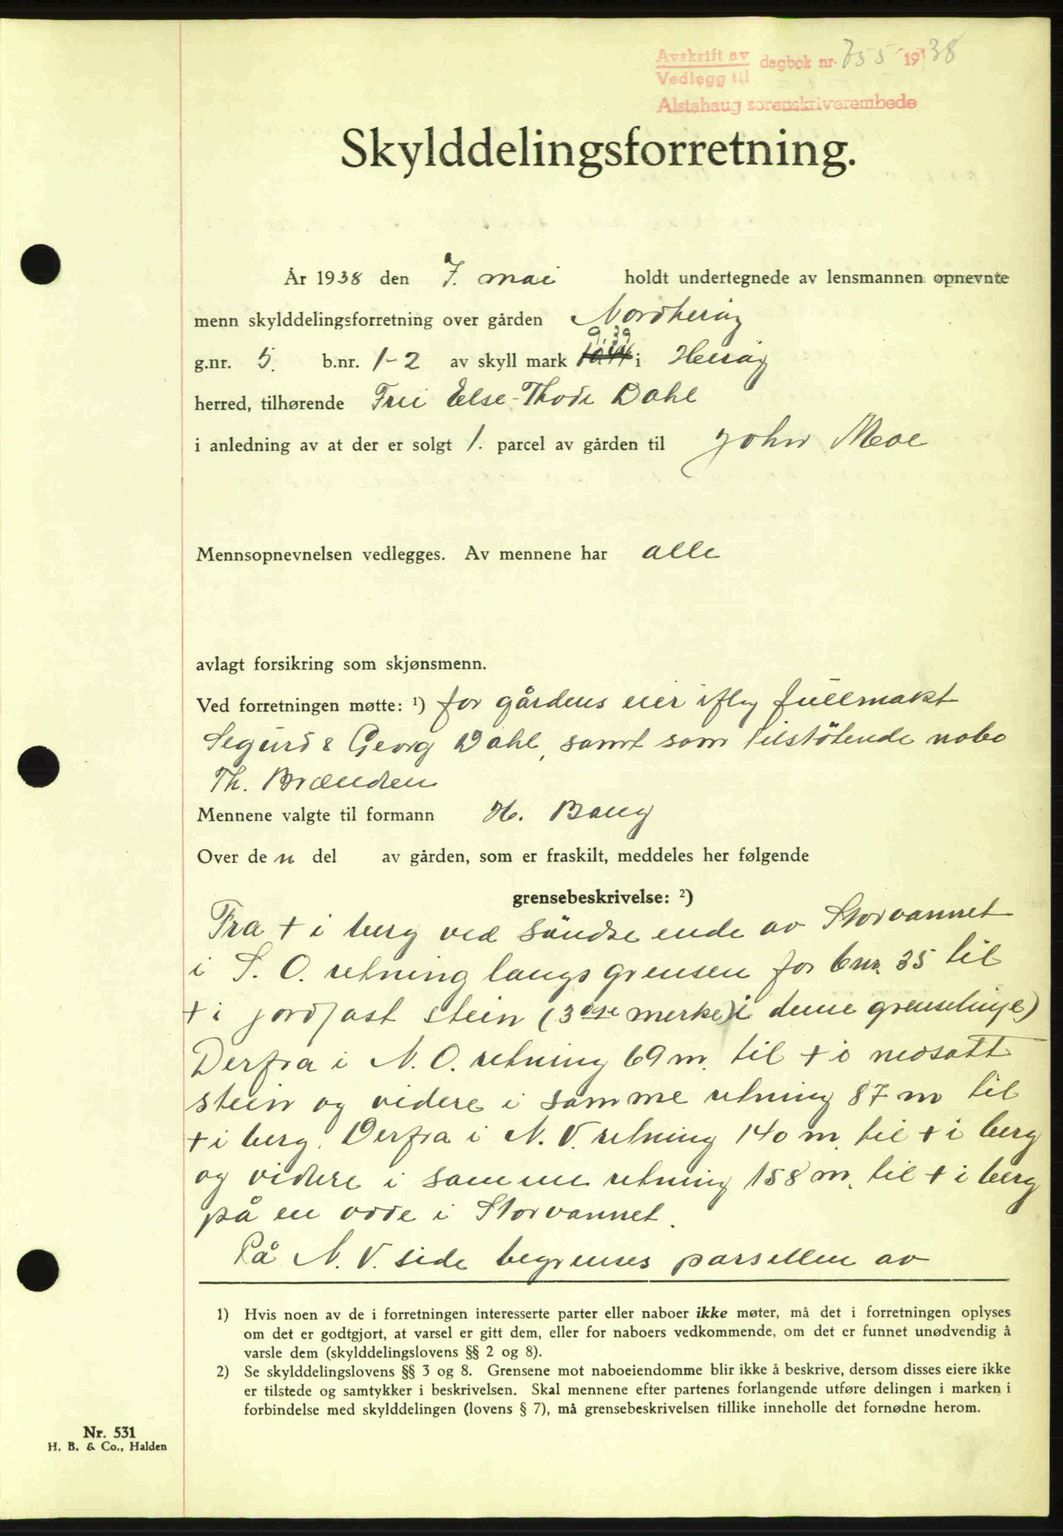 Avskrift av
Vedlegg til
dagbok nr. 755 1938
Alstahaug sorenskriverembede
Skylddelingsforretning.
År 1938 den 7. mai holdt undertegnede av lensmannen opnevnte
menn skylddelingsforretning over gården Nordherøy
9,39
g.nr. 5. b.nr. 1-2 av skyll mark i Herøy
herred, tilhørende Fru Else-Thode Dahl
i anledning av at der er solgt 1. parcel av gården til John Moe
Mennsopnevnelsen vedlegges. Av mennene har alle
avlagt forsikring som skjønsmenn.
Ved forretningen møtte: ¹) for gårdens eier iflg fullmakt
Sigurd & Georg Dahl, samt som tilstøtende nabo
Th. Brænden
Mennene valgte til formann H. Bang
Over den del av gården, som er fraskilt, meddeles her følgende
grensebeskrivelse: ²)
Fra + i berg ved søndre ende av Storvannet
i S. O. retning langs grensen for bnr. 35 til
+ i jordfast stein (3dje merke i denne grenselinje)
Derfra i N. O. retning 69 m. til + i nedsatt
stein og videre i samme retning 87 m til
+ i berg. Derfra i N. V. retning 140 m. til + i berg
og videre i samme retning 158 m. til + i berg
på en odde i Storvannet.
På N. V. side begrenses parsellen av
1) Hvis noen av de i forretningen interesserte parter eller naboer ikke møter, må det i forretningen oplyses
om det er godtgjort, at varsel er gitt dem, eller for naboers vedkommende, om det er funnet unødvendig å
varsle dem (skylddelingslovens §§ 2 og 8).
2) Se skylddelingslovens §§ 3 og 8. Grensene mot naboeiendomme blir ikke å beskrive, dersom disses eiere ikke
er tilstede og samtykker i beskrivelsen. Skal mennene efter partenes forlangende utføre delingen i marken i
forbindelse med skylddelingen (lovens § 7), må grensebeskrivelsen tillike inneholle det fornødne herom.
Nr. 531
H. B. & Co., Halden